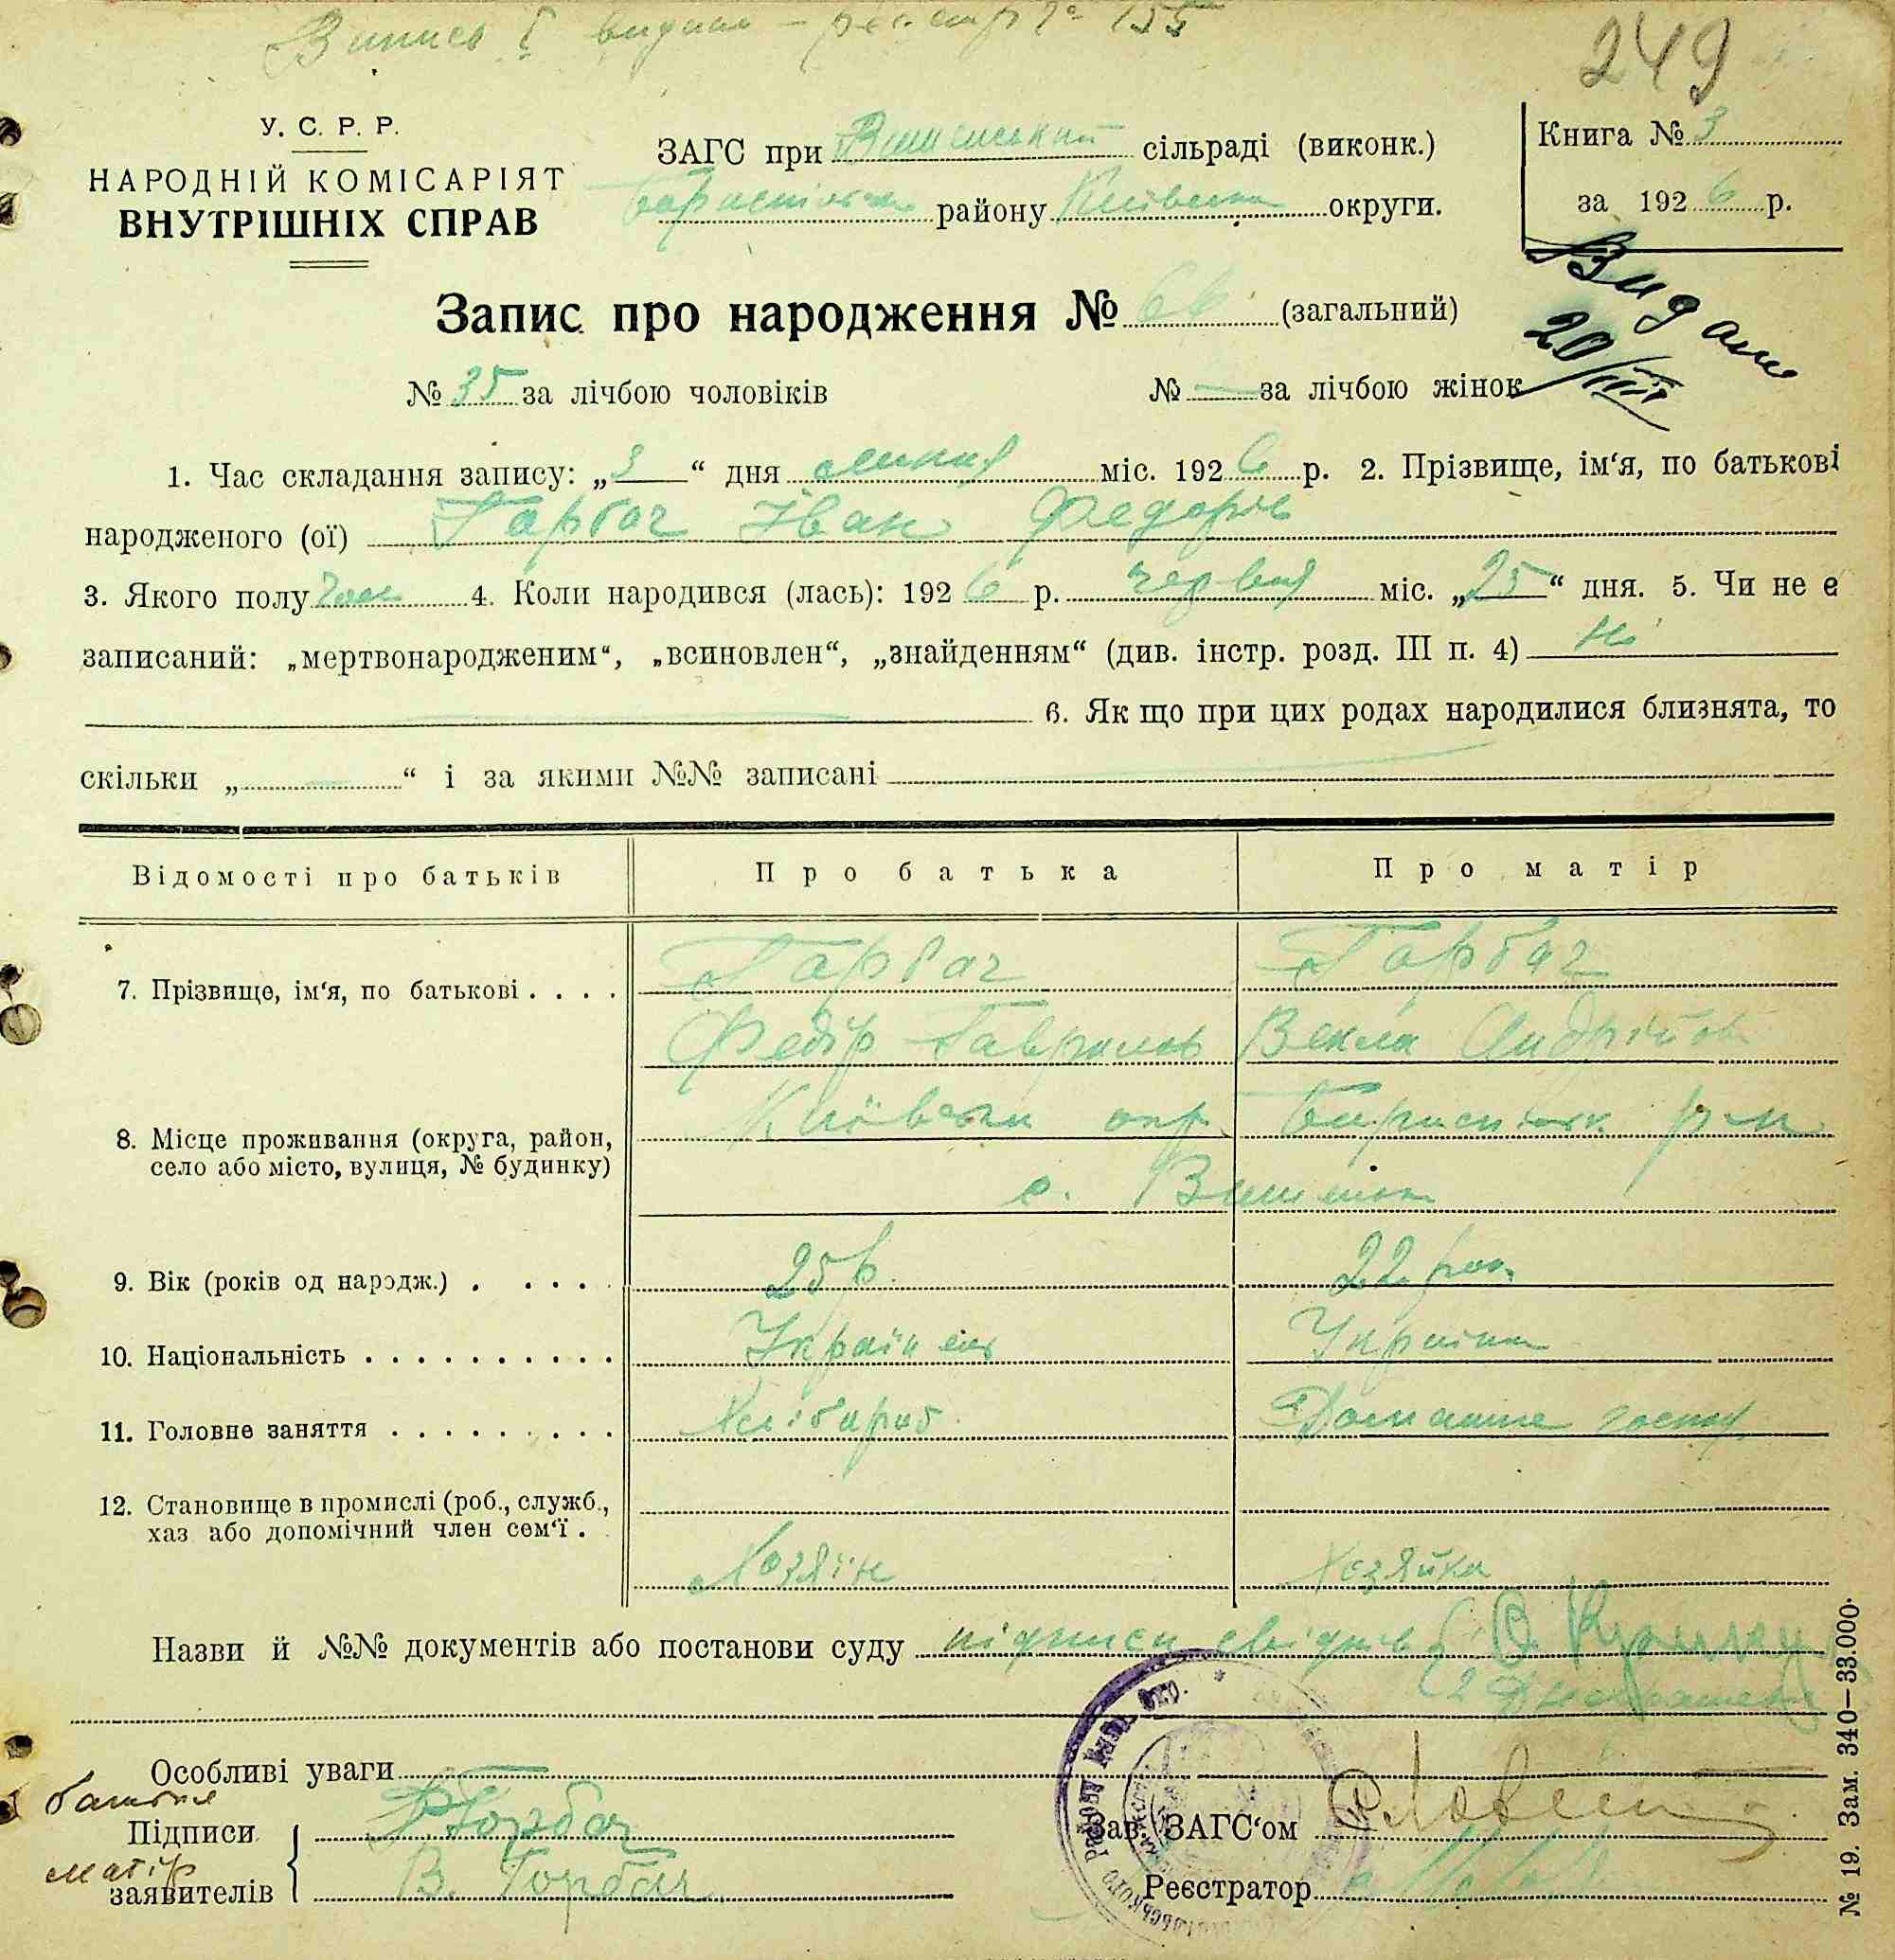 Випис видано - реєстр № 155
249
У. С. Р. Р.
НАРОДНІЙ КОМІСАРІЯТ
ВНУТРІШНІХ СПРАВ
ЗАГС при сільраді (виконк.)
району округи.
Книга № 3
за 1926 р.
Видан
20/VIII
Запис про народження № 66 (загальний)
№ 35 за лічбою чоловіків
№ — за лічбою жінок
1. Час складання запису: „3“ дня липня міс. 1926 р. 2. Прізвище, ім‘я, по батькові
народженого (ої) Гарбач Іван Федорів
3. Якого полу чол 4. Коли народився (лась): 1926 р. червня міс. „25“ дня. 5. Чи не є
записаний: „мертвонародженим“, „всиновлен“, „знайденням“ (див. інстр. розд. III п. 4) Ні
6. Як що при цих родах народилися близнята, то
скільки „ — “ і за якими №№ записані
Відомості про батьків
Про батька
Про матір
7. Прізвище, ім‘я, по батькові . . . .
Гарбач
Гарбач
Федір Гаврилов
Векла Андрійов
8. Місце проживання (округа, район,
село або місто, вулиця, № будинку)
Київськ окр.
Бориспільськ р-н
с.
9. Вік (років од народж.) . . . . .
25 р.
22 рок.
10. Національність . . . . . . . . . . .
Українець
Українка
11. Головне заняття . . . . . . . . . .
Хлібороб
Домашнє господ.
12. Становище в промислі (роб., служб.,
хаз або допомічний член сем‘ї .
Хозяїн
Хозяйка
Назви й №№ документів або постанови суду підписи свідків
2
Особливі уваги
батько
Підписи
Ф Горбач
матір
заявителів
В. Горбач
Зав. ЗАГС‘ом
Реєстратор
№ 19. Зам. 340—33.000.